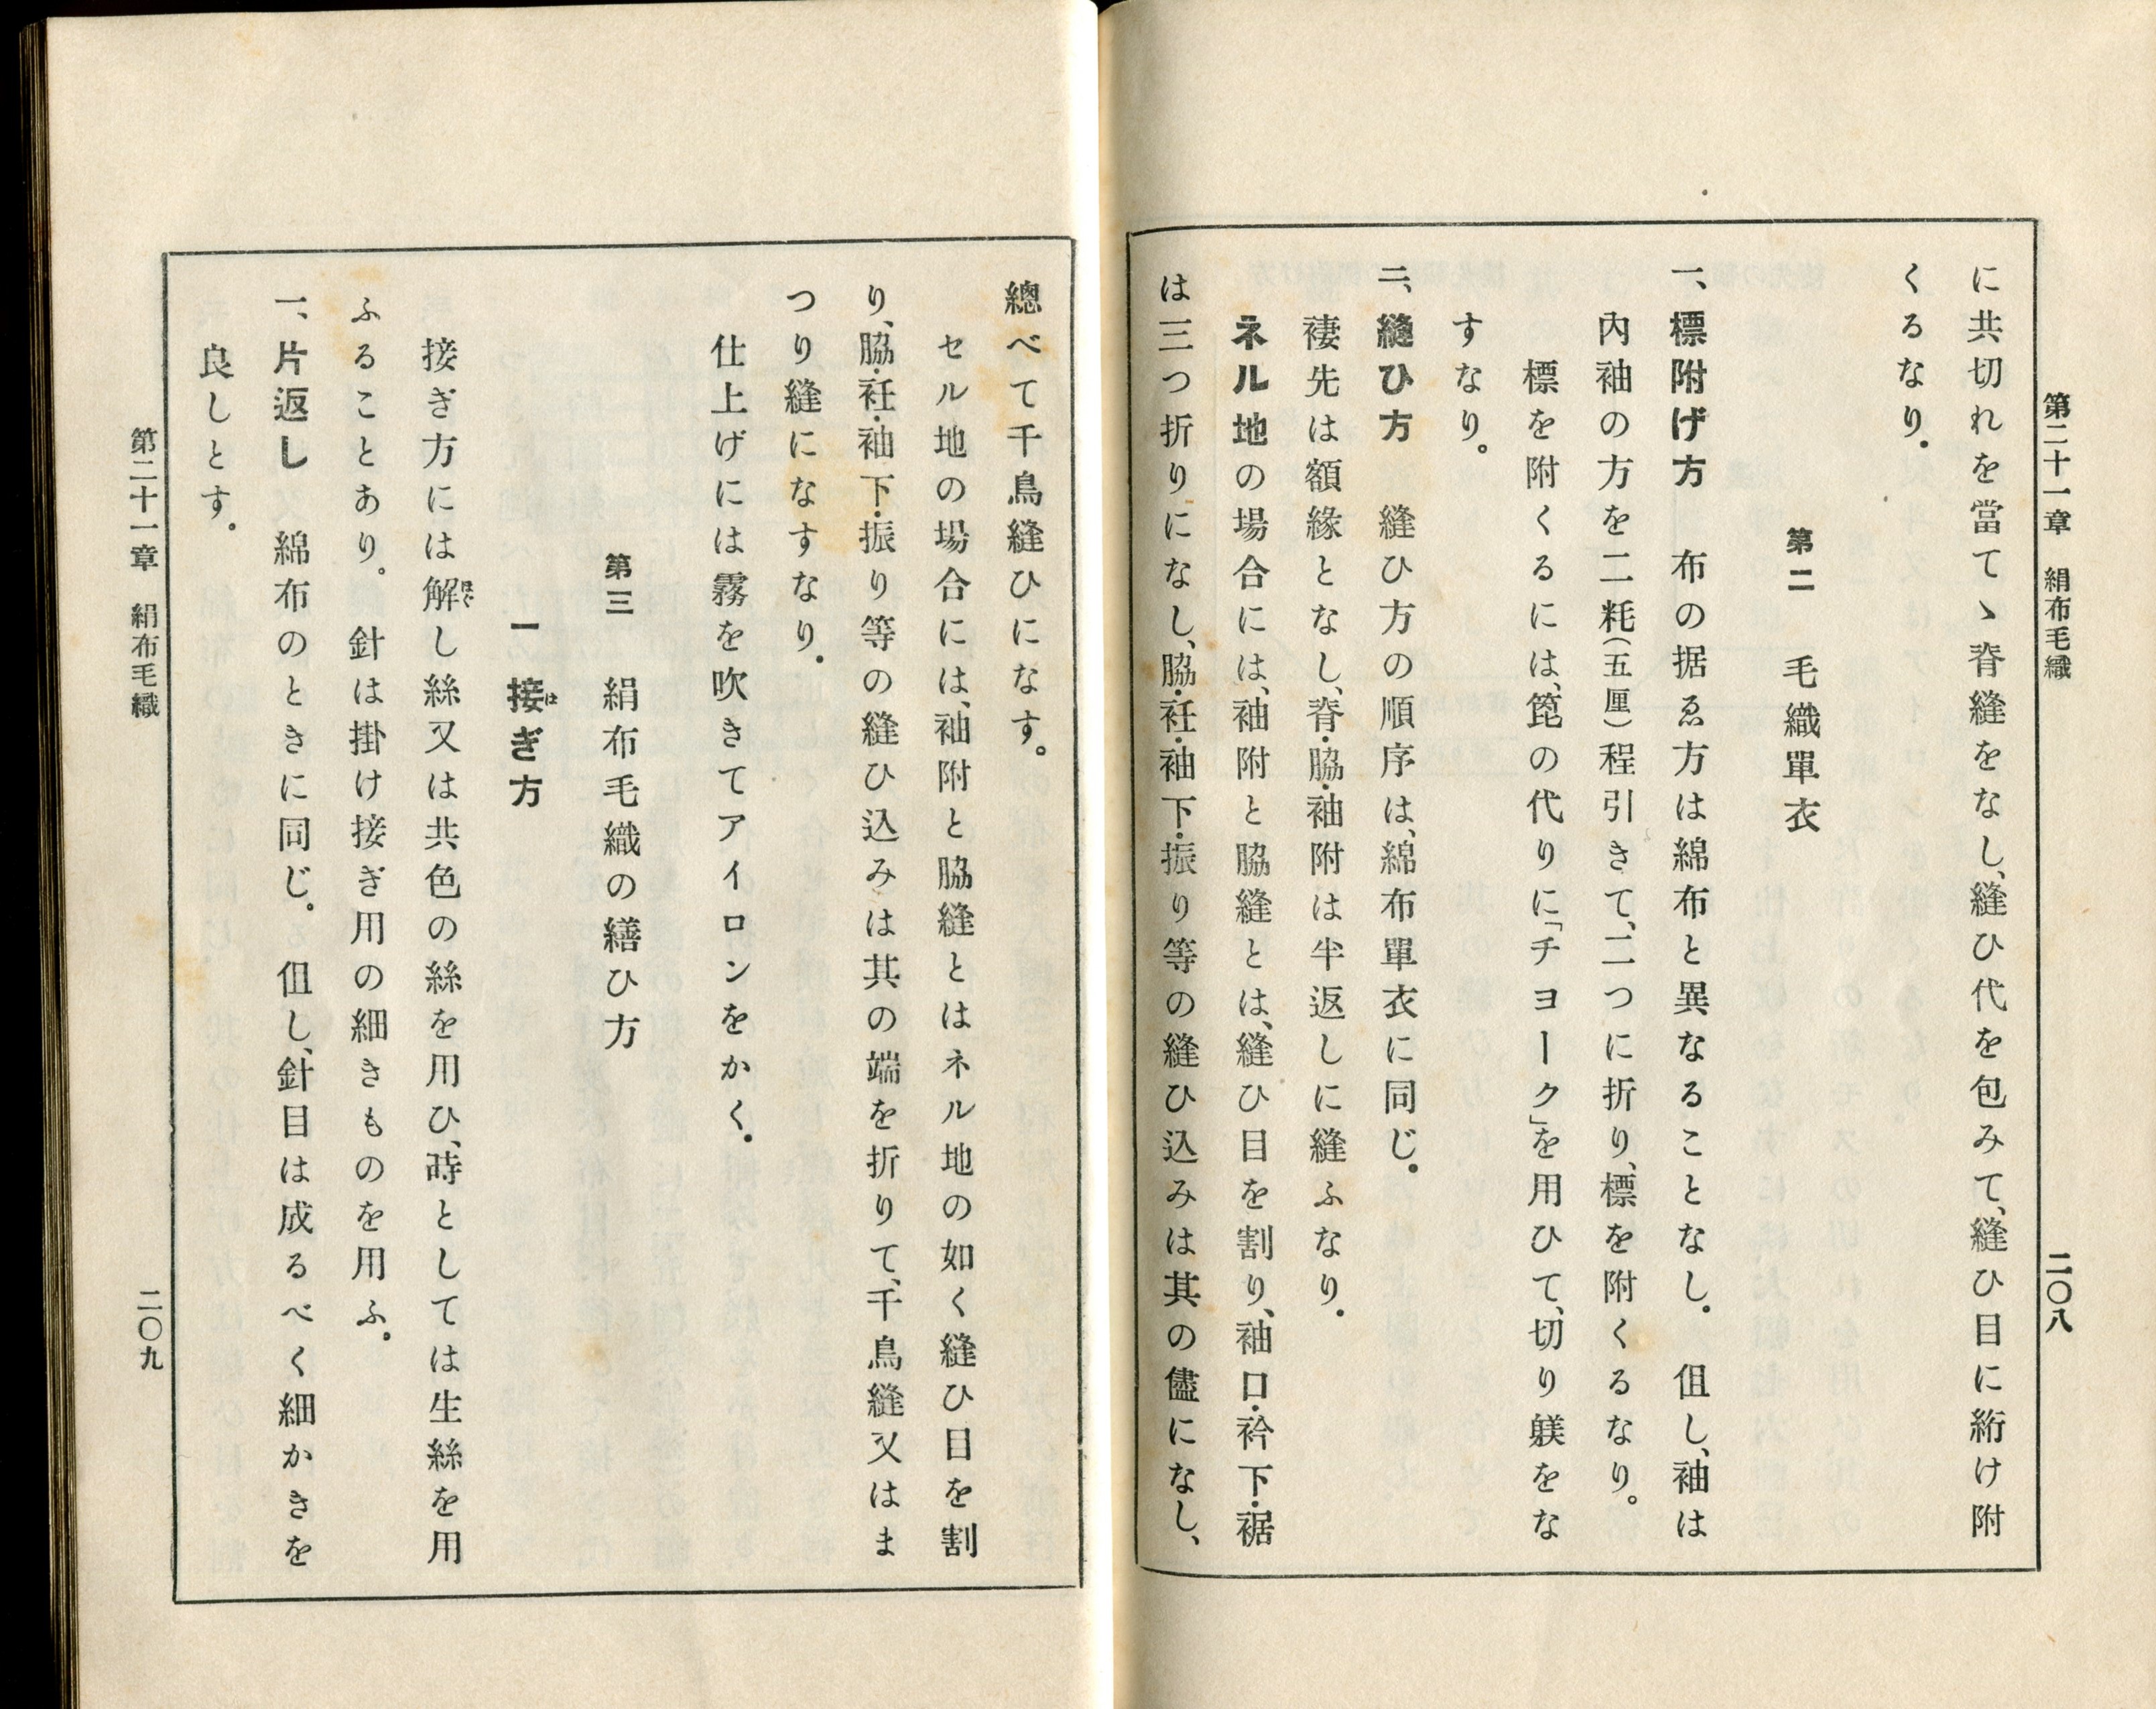 第二十一章　絹布毛織
二〇八
に共切れを當てゝ脊縫をなし、縫ひ代を包みて、縫ひ目に絎け附
くるなり。
第二　毛織單衣
一、標附げ方　布の据ゑ方は綿布と異なることなし。但し、袖は
內袖の方を二粍(五厘)程引きて、二つに折り、標を附くるなり。
標を附くるには、篦の代りに「チヨーク」を用ひて、切り躾をな
すなり。
二、縫ひ方　縫ひ方の順序は、綿布單衣に同じ。
褄先は額緣となし、脊・脇・袖附は半返しに縫ふなり。
ネル地の場合には、袖附と脇縫とは、縫ひ目を割り、袖口・衿下・裾
は三つ折りになし、脇・衽・袖下・振り等の縫ひ込みは其の儘になし、
總べて千鳥縫ひになす。
セル地の場合には、袖附と脇縫とはネル地の如く縫ひ目を割
り、脇・衽・袖下・振り等の縫ひ込みは其の端を折りて、千鳥縫又はま
つり縫になすなり。
仕上げには霧を吹きてアイロンをかく。
第三　絹布毛織の繕ひ方
一　接ぎ方
は
接ぎ方には解し絲又は共色の絲を用ひ、蒔としては生絲を用
ほぐ
ふることあり。針は掛け接ぎ用の細きものを用ふ。
一、片返し　綿布のときに同じ。但し、針目は成るべく細かきを
良しとす。
第二十一章　絹布毛織
二〇九